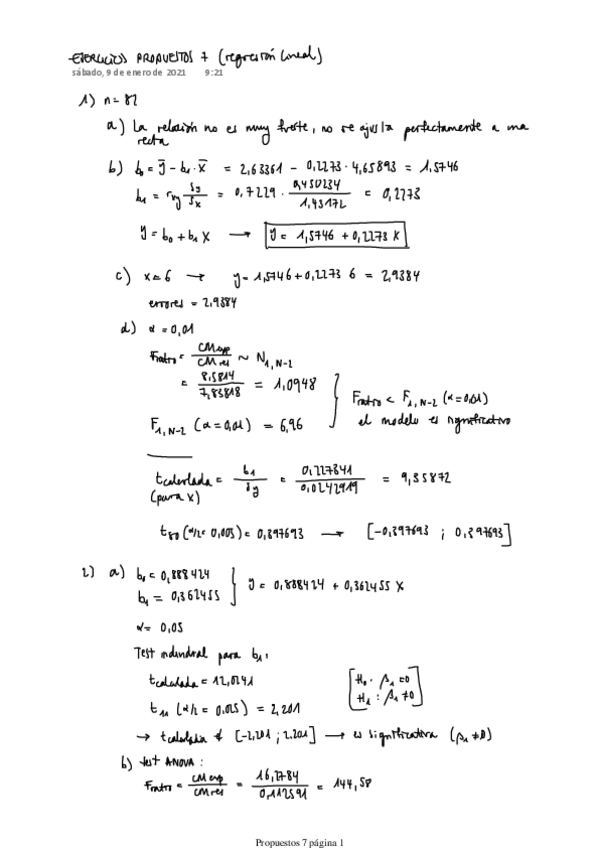 EJERCICIOS PROPUESTOS 7 (regresión lineal)
sábado, 9 de enero de 2021 9:21
1) n = 82
a) La relación no es muy fuerte, no se ajusta perfectamente a una
recta
b) b₀ = ȳ - b₁ · x̄ = 2,63361 - 0,2273 · 4,65893 = 1,5746
b₁ = rxy Sy/Sx = 0,7229 · 0,450234/1,43172 = 0,2273
y = b₀ + b₁ x → y = 1,5746 + 0,2273 x
c) x = 6 → y = 1,5746 + 0,2273 6 = 2,9384
errores = 2,9384
d) α = 0,01
Fratio = CMexp/CMres ~ N1,N-2
= 8,5814/7,83818 = 1,0948
F1,N-2 (α = 0,01) = 6,96
Fratio < F1,N-2 (α = 0,01)
el modelo es significativo
tcalculada = b₁/sy = 0,227341/0,0242919 = 9,35872
(para x)
t80 (α/2 = 0,005) = 0,397693 → [-0,397693 ; 0,397693]
2) a) b₀ = 0,888424
b₁ = 0,362455
y = 0,888424 + 0,362455 x
α = 0,05
Test individual para b₁:
tcalculada = 12,0241
t11 (α/2 = 0,025) = 2,201
[H₀: β₁ = 0
H₁: β₁ ≠ 0]
→ tcalculada ∉ [-2,201 ; 2.201] → es significativa (β₁ ≠ 0)
b) test ANOVA:
Fratio = CMexp/CMres = 16,2784/0,112591 = 144,58
Propuestos 7 página 1